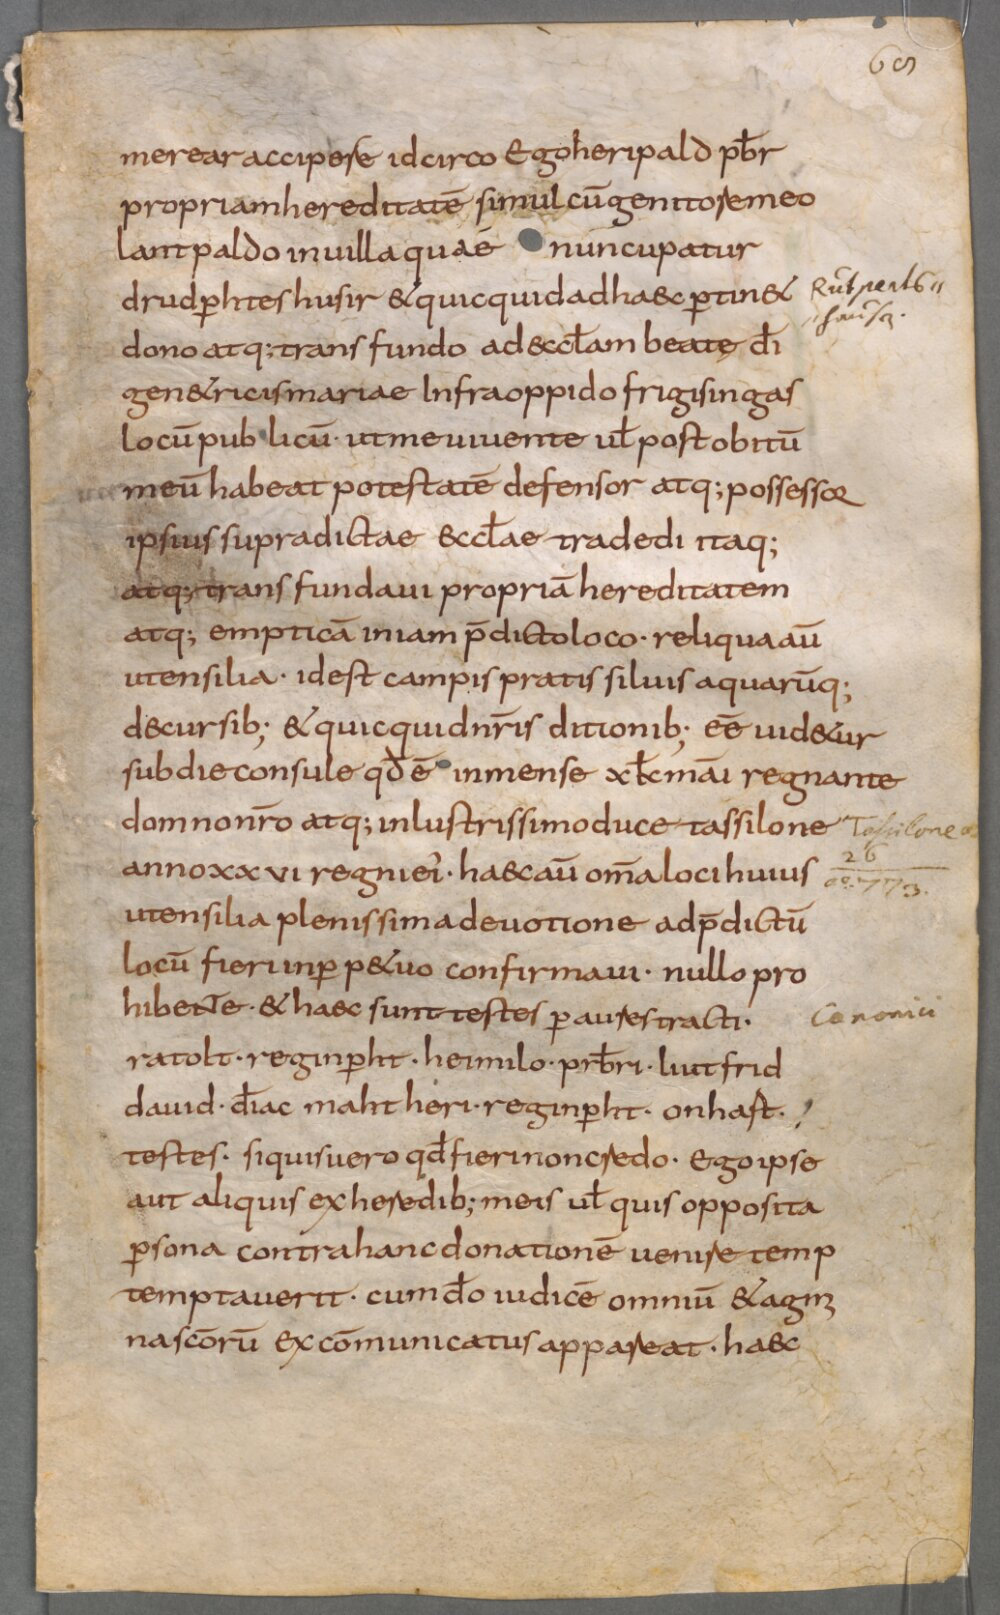 69
merear accipere idcirco Ego heripald pb̄r
propriam hereditatē simul cū genitore meo
lantpaldo in uilla quae nuncupatur
drudp̄htes husir & quicquid ad haec p̄tin&
dono atq; trans fundo ad eccl̄am beate dī
gen&ricis mariae Infra oppido frigisingas
locū publicū· ut me uiuente ul̄ post obitū
meū habeat potestatē defensor atq; possessor
ipsius supradictae eccl̄ae tradedi itaq;
atq; trans fundaui propriā hereditatem
atq; empticā in iam p̄dicto loco· reliqua aū
utensilia· id est campis pratis siluis aquarūq;
decursib; & quicquid nr̄is ditionib; eē uid&ur
sub die consule qđ ē in mense x kl̄ māi regnante
domno nr̄o atq; inlustrissimo duce tassilone
anno xxvi regni ei· haec aū om̄a loci huius
utensilia plenissima deuotione ad p̄dictū
locū fieri in p̄p&uo confirmaui· nullo pro
hibente· & haec sunt testes p̄ aures tracti·
ratolt· reginp̄ht· heimilo· prb̄ri· liutfrid
dauid· diac̄ mahtheri· reginp̄ht· onhast·
testes· si quis uero qđ fieri non credo· Ego ipse
aut aliquis ex heredib; meis ul̄ quis opposita
p̄sona contra hanc donationē uenire temp
temptauerit· cum dō iudicē omniū & agm̄
na sc̄orū excōmunicatus appareat· haec
Tassilone
26
773.
Canonici